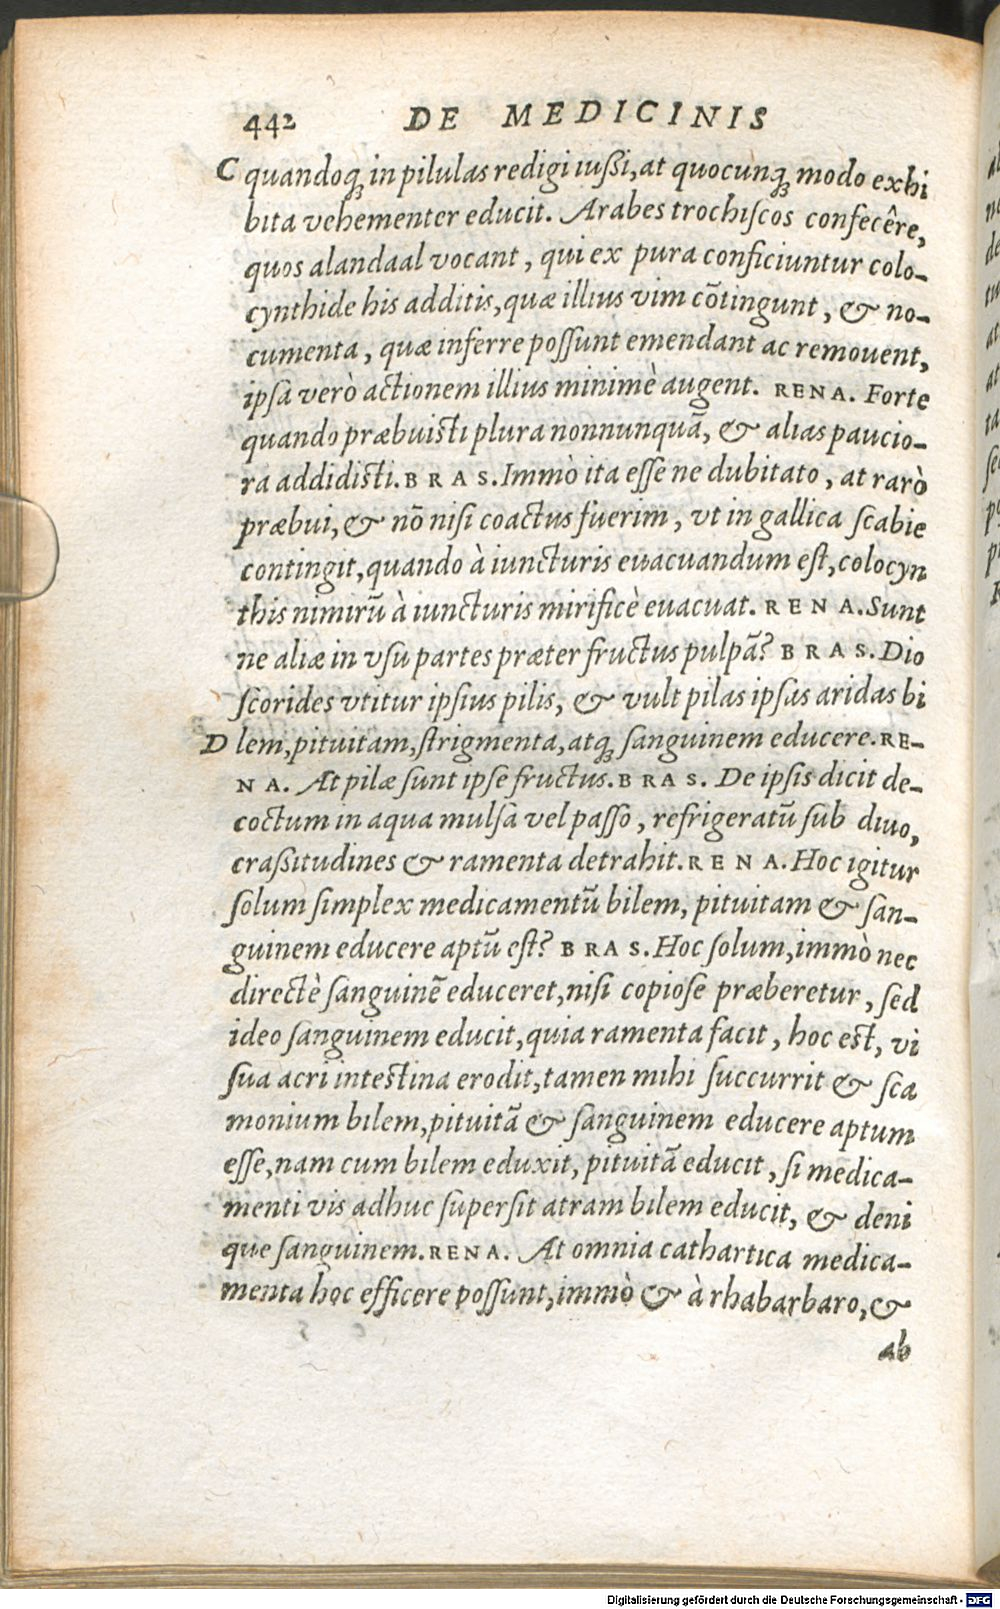 442 DE MEDICINIS
C quandoq; in pilulas redigi iußi, at quocunq; modo exhi
bita vehementer educit. Arabes trochiscos confecêre,
quos alandaal vocant, qui ex pura conficiuntur colo-
cynthide his additis, quæ illius vim cõtingunt, & no-
cumenta, quæ inferre possunt emendant ac remouent,
ipsa verò actionem illius minimè augent. RENA. Forte
quando præbuisti plura nonnunquã, & alias paucio-
ra addidisti. BRAS. Immò ita esse ne dubitato, at rarò
præbui, & nõ nisi coactus fuerim, vt in gallica scabie
contingit, quando à iuncturis euacuandum est, colocyn
this nimirũ à iuncturis mirificè euacuat. RENA. Sunt
ne aliæ in vsu partes præter fructus pulpã? BRAS. Dio
scorides vtitur ipsius pilis, & vult pilas ipsas aridas bi
D lem, pituitam, strigmenta, atq; sanguinem educere. RE-
NA. At pilæ sunt ipse fructus. BRAS. De ipsis dicit de-
coctum in aqua mulsa vel passo, refrigeratũ sub diuo,
craßitudines & ramenta detrahit. RENA. Hoc igitur
solum simplex medicamentũ bilem, pituitam & san-
guinem educere aptũ est? BRAS. Hoc solum, immò nec
directè sanguinẽ educeret, nisi copiose præberetur, sed
ideo sanguinem educit, quia ramenta facit, hoc est, vi
sua acri intestina erodit, tamen mihi succurrit & sca
monium bilem, pituitã & sanguinem educere aptum
esse, nam cum bilem eduxit, pituitã educit, si medica-
menti vis adhuc supersit atram bilem educit, & deni
que sanguinem. RENA. At omnia cathartica medica-
menta hoc efficere possunt, immò & à rhabarbaro, &
ab
Digitalisierung gefördert durch die Deutsche Forschungsgemeinschaft - DFG